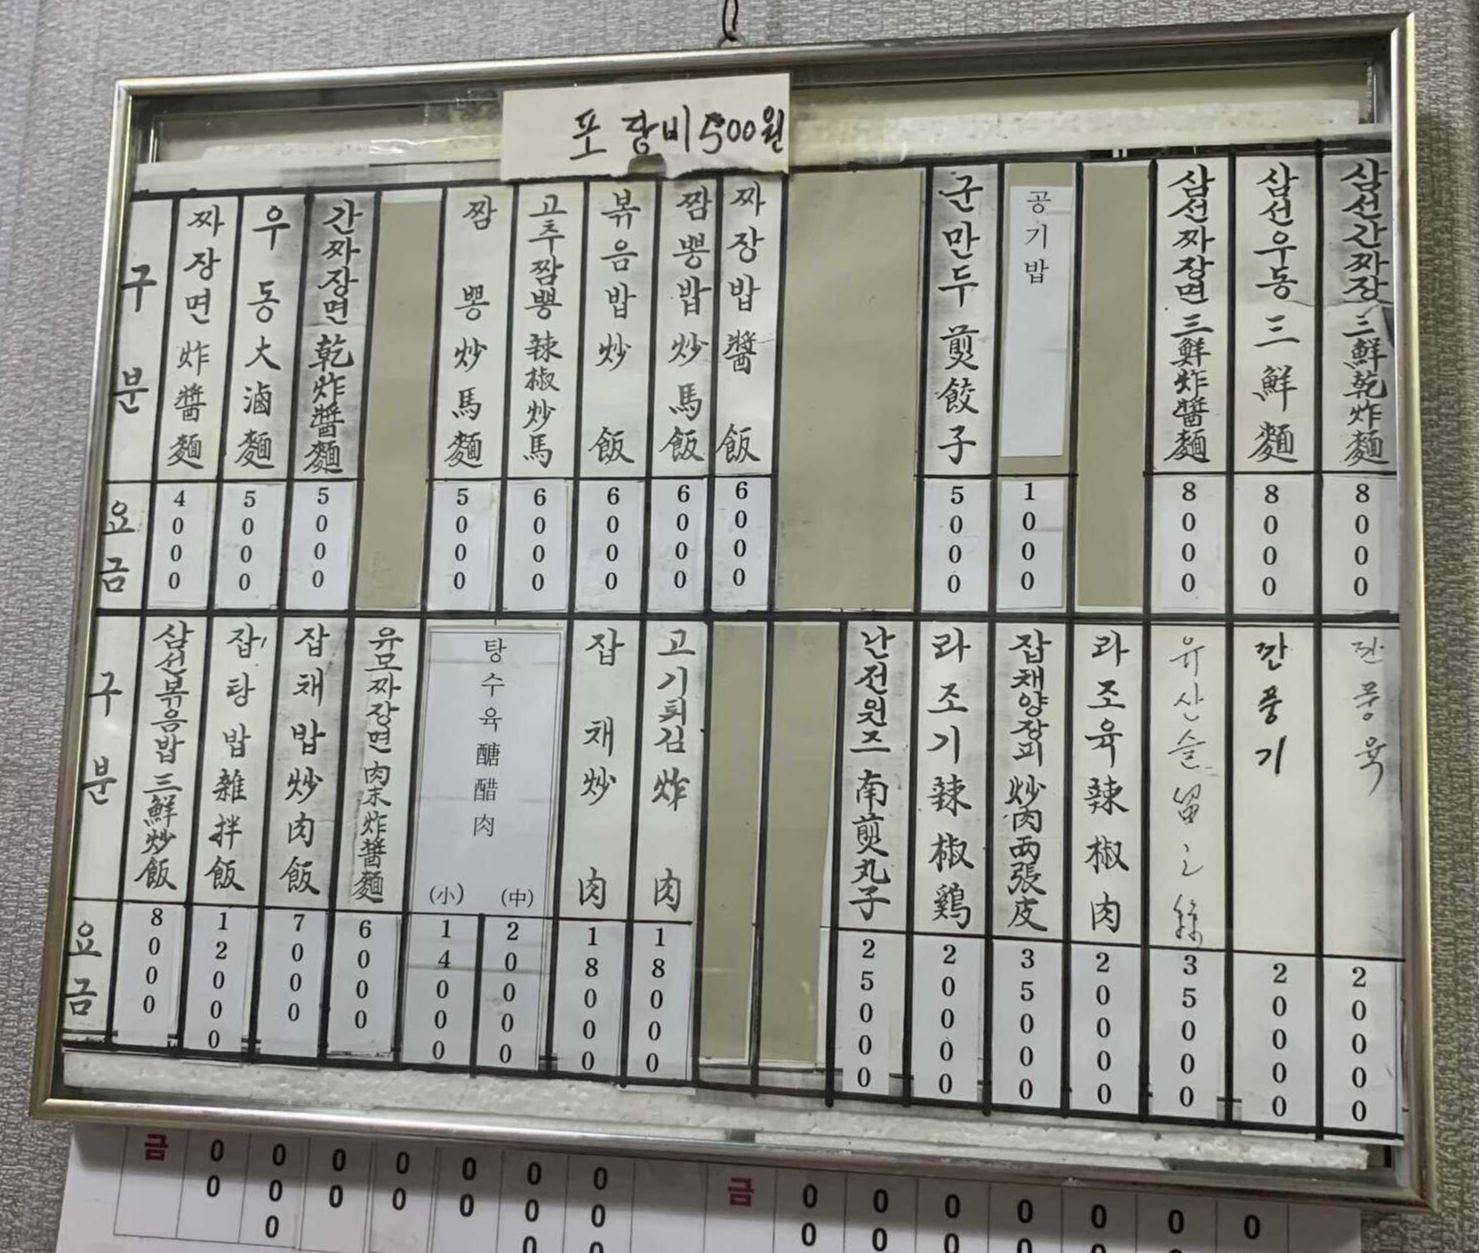 포장비 500원
구분
짜장면 炸醬麵
우동 大滷麵
간짜장면 乾炸醬麵
짬뽕 炒馬麵
고추짬뽕 辣椒炒馬
볶음밥 炒飯
짬뽕밥 炒馬飯
짜장밥 醬飯
군만두 煎餃子
공기밥
삼선짜장면 三鮮炸醬麵
삼선우동 三鮮麵
삼선간짜장 三鮮乾炸麵
요금
4000
5000
5000
5000
6000
6000
6000
6000
5000
1000
8000
8000
8000
구분
삼선볶음밥 三鮮炒飯
잡탕밥 雜拌飯
잡채밥 炒肉飯
유모짜장면 肉末炸醬麵
탕수육 醣醋肉
(小) (中)
잡채 炒肉
고기튀김 炸肉
난전원즈 南煎丸子
라조기 辣椒鷄
잡채양장피 炒肉両張皮
라조육 辣椒肉
유산슬
깐풍기
깐풍육
요금
8000
12000
7000
6000
14000
20000
18000
18000
25000
20000
35000
20000
35000
20000
20000
금
00
000
00
00
00
000
000
금
00
00
00
00
00
00
0